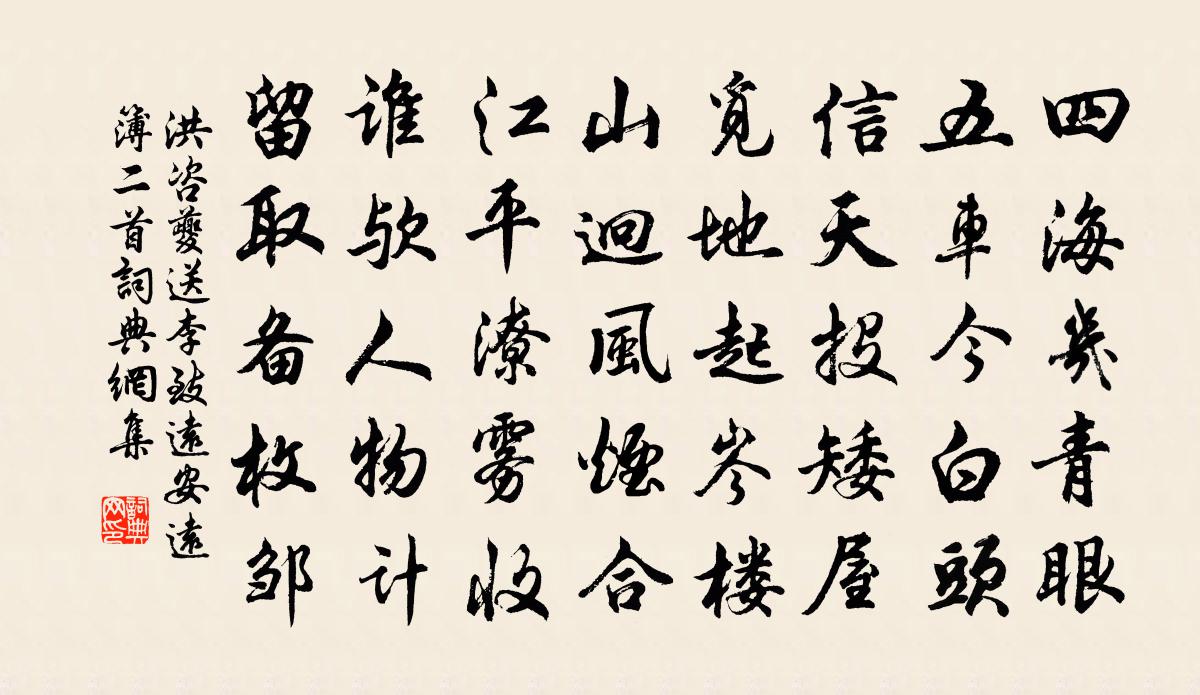 四海幾青眼
五車今白頭
信天投矮屋
覓地起岑楼
山迴風煙合
江平潦雾收
谁欤人物计
留取备枚邹
洪咨夔送李致遠安遠
簿二首詞典網集
詞典
网印